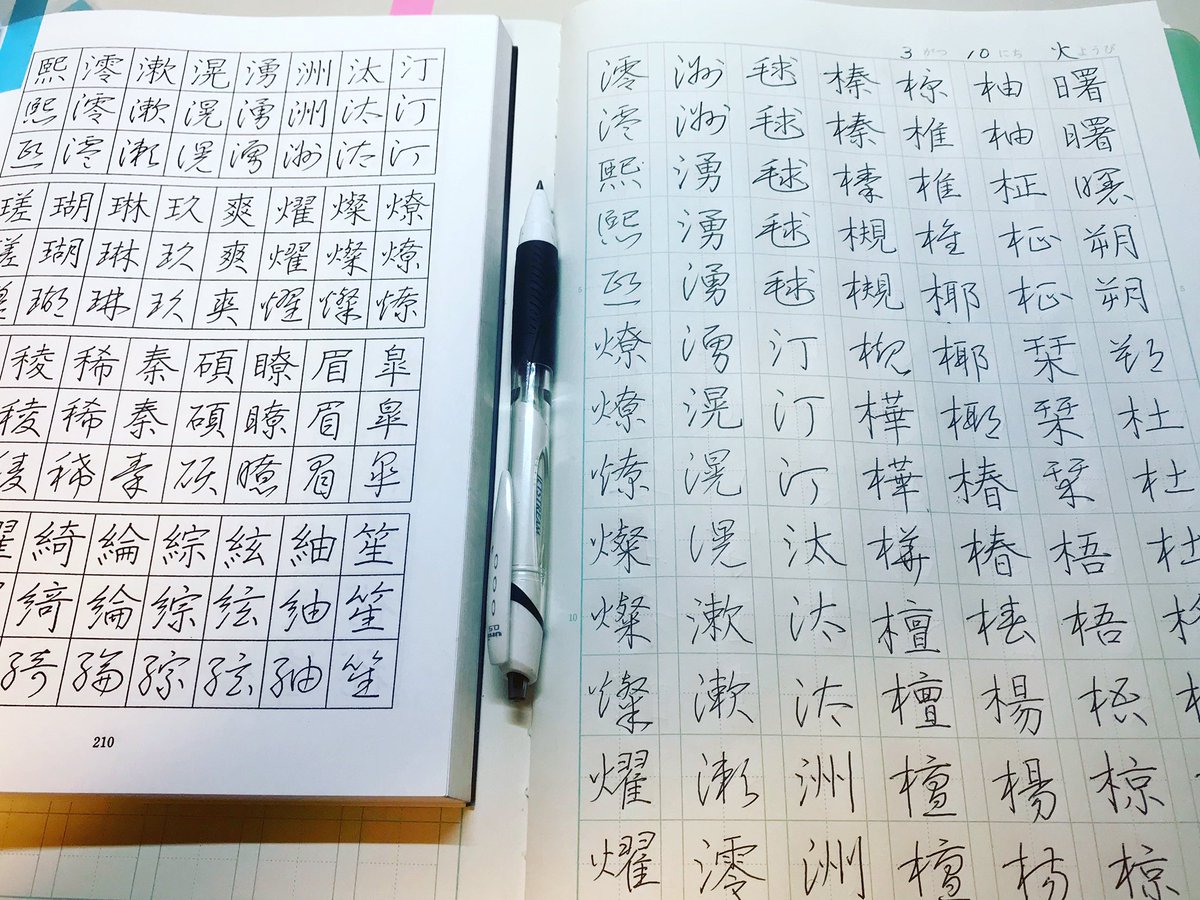 汀汀汀
汰汰汰
洲洲洲
湧湧湧
滉滉滉
漱漱漱
澪澪澪
熙熙熙
燎燎燎
燦燦燦
燿燿燿
爽爽爽
玖玖玖
琳琳琳
瑚瑚瑚
瑳瑳瑳
皐皐皐
眉眉眉
瞭瞭瞭
碩碩碩
秦秦秦
稀稀稀
稜稜稜
笙笙笙
紬紬紬
絃絃絃
綜綜綜
綸綸綸
綺綺綺
210
JETSTREAM
3がつ 10にち 火ようび
曙曙曙朔朔朔杜杜杜
柚柚柾柾柾栞栞栞梧梧梧椋椋
椋椎椎椎椰椰椰椿椿椿楊楊楊
榛榛榛槻槻槻樺樺樺檀檀檀檀
毬毬毬毬毬汀汀汀汰汰汰洲洲
洲洲湧湧湧湧滉滉滉漱漱漱澪
澪澪熙熙熙燎燎燎燦燦燦燿燿
5
10